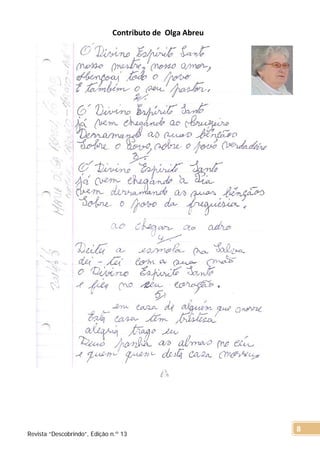 Contributo de Olga Abreu
Ó Divino Espírito Santo
nosso mestre, nosso amor,
abençoai todo o povo
E também o seu pastor.
2º
Ó Divino Espírito Santo
já vem chegando ao
Derramando as suas bênçãos
Sobre o povo, sobre o povo verdadeiro
3º
Ó Divino Espírito Santo
já vem chegando a
vem derramando as suas bênçãos
Sobre o povo da freguesia.
ao chegar ao adro
4
Deitei a esmola na Salva
dei-lei com a sua mão
O Divino Espírito Santo
e fica no seu coração.
5º
em casa de alguém que morreu
Esta casa têm tristeza
alegria trago eu
Deus ponha as almas no céu
e quem quem desta casa morreu
8
Revista "Descobrindo", Edição n.º 13